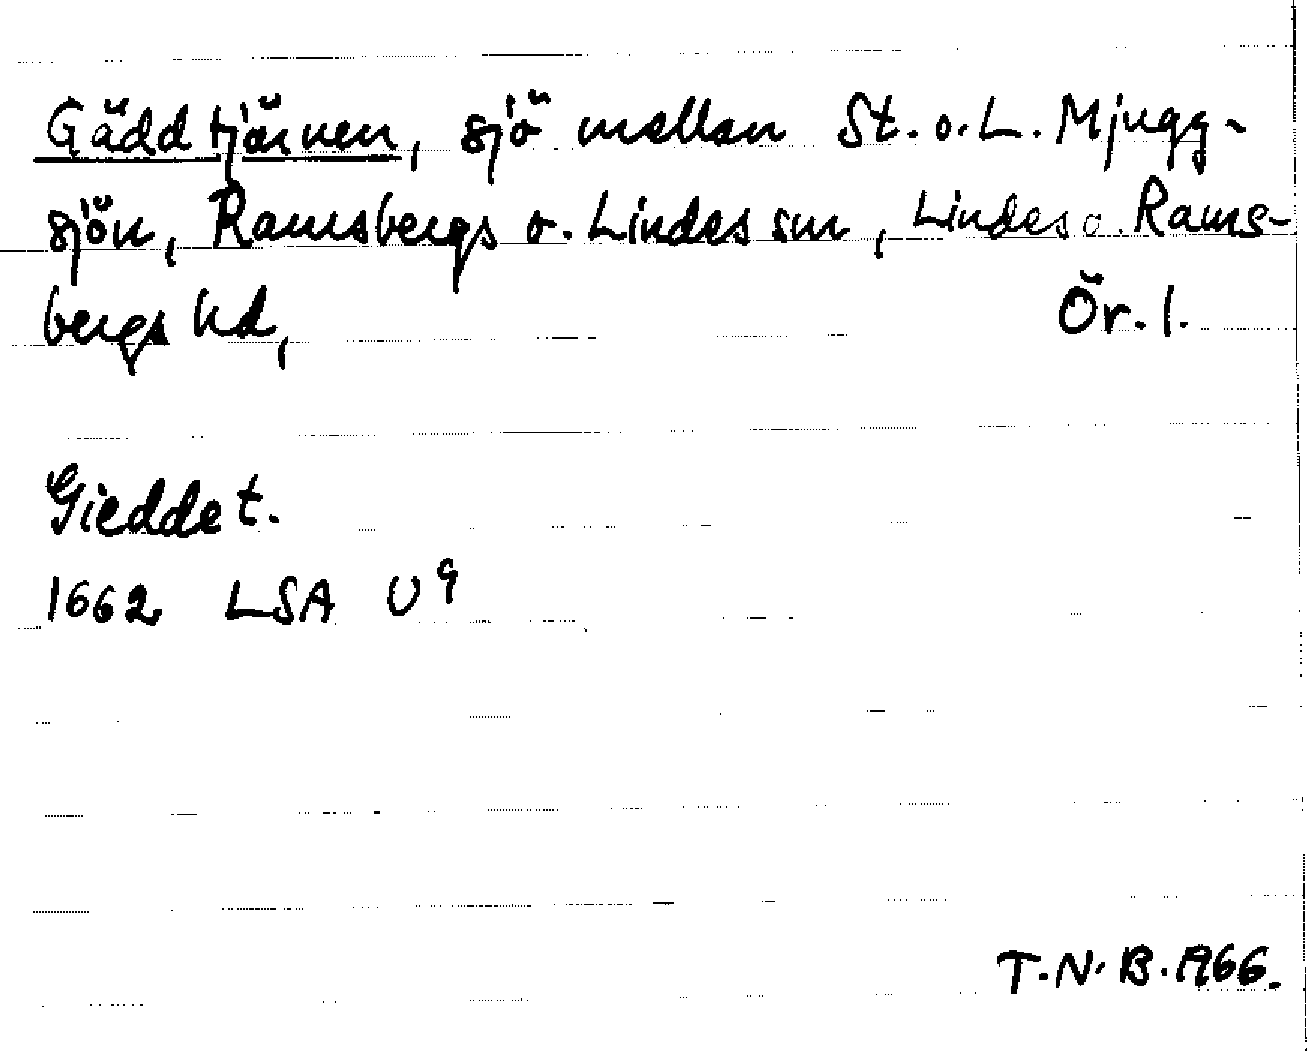 Gäddtjärnen, sjö mellan St. o. L. Mjugg-
sjön, Ramsbergs o. Lindes snr, Lindes o. Rams-
bergs hd, Ör. l.
Gieddet.
1662 LSA U9
T.N.B. 1966.